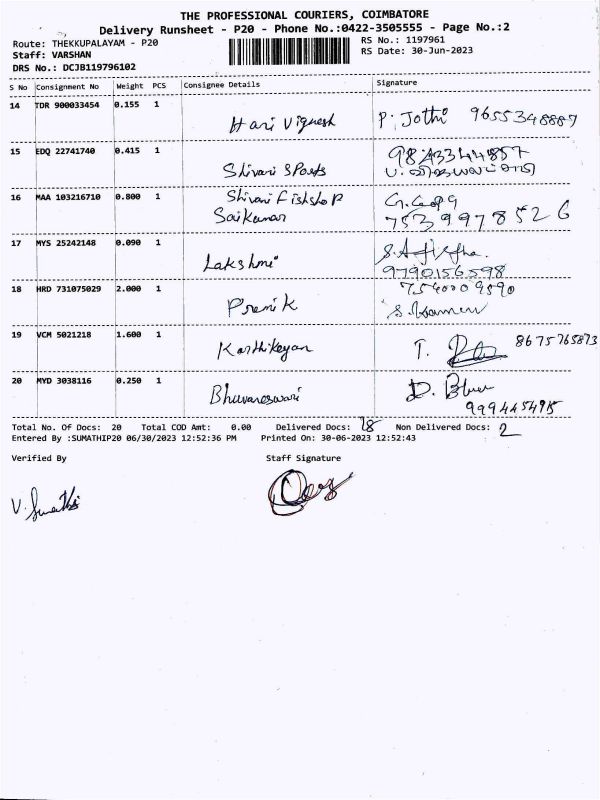 THE PROFESSIONAL COURIERS, COIMBATORE
Delivery Runsheet - P20 - Phone No.:0422-3505555 - Page No.:2
Route: THEKKUPALAYAM - P20
RS No.: 1197961
Staff: VARSHAN
RS Date: 30-Jun-2023
DRS No.: DCJB119796102
S No Consignment No Weight PCS Consignee Details Signature
14 TDR 900033454 0.155 1 Hari Vignesh P. Jothi 9655348887
15 EDQ 22741740 0.415 1 Shivani Sports 9843344857
16 MAA 103216710 0.800 1 Shivani Fishshop
Saikumar 7539978526
17 MYS 25242148 0.090 1 Lakshmi
9790156598
18 HRD 731075029 2.000 1 Premik 7540009590
19 VCM 5021218 1.600 1 Karthikeyan T. 8675765873
20 MYD 3038116 0.250 1 Bhuvaneswari D. Bhu
Total No. Of Docs: 20 Total COD Amt: 0.00 Delivered Docs: 18 Non Delivered Docs: 2
Entered By :SUMATHIP20 06/30/2023 12:52:36 PM Printed On: 30-06-2023 12:52:43
Verified By Staff Signature
V. Sumathi